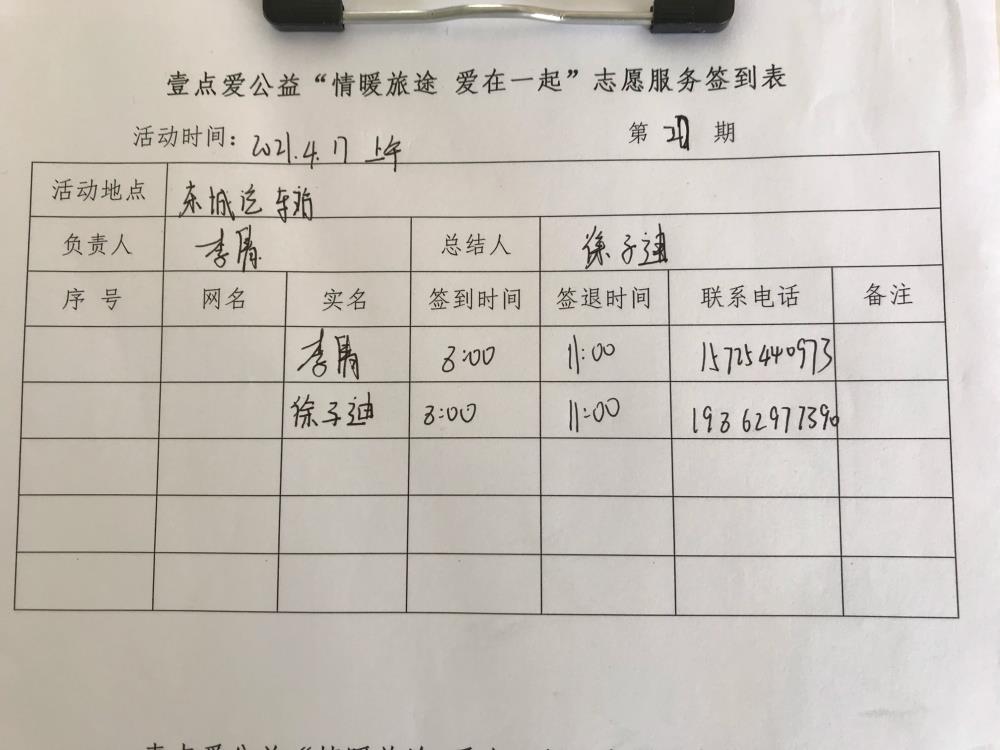 壹点爱公益“情暖旅途 爱在一起”志愿服务签到表
活动时间：2021.4.17 上午 第 期
活动地点 东城汽车站
负责人 李 总结人 徐子迪
序号 网名 实名 签到时间 签退时间 联系电话 备注
李 8:00 11:00 15725440973
徐子迪 8:00 11:00 19862977390